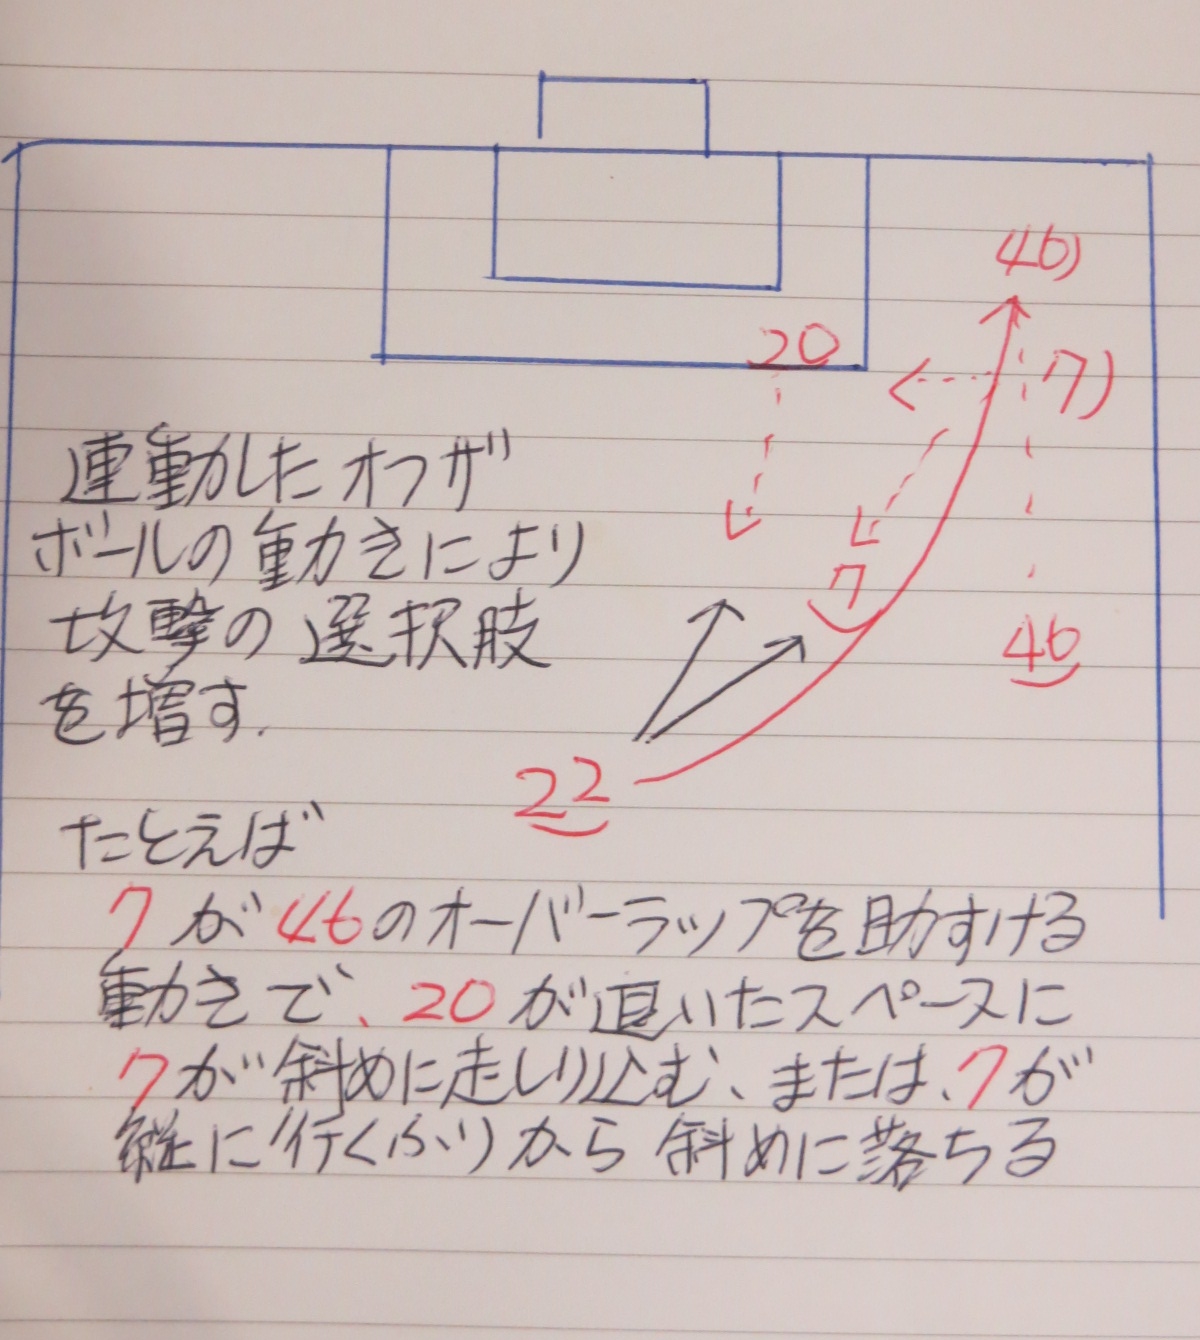 46)
20
7)
連動したオフザ
ボールの動きにより
7
攻撃の選択肢
46
を増す.
22
たとえば
7が46のオーバーラップを助すける
動きで、20が退いたスペースに
7が斜めに走しり込む、または、7が
縦に行くふりから斜めに落ちる